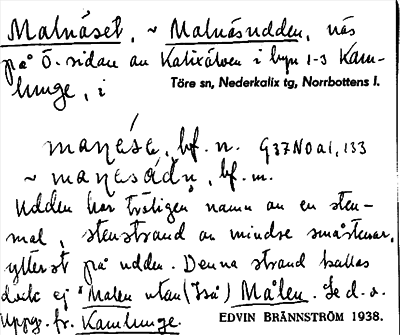 Malnäset, ~ Malnäsudden, näs
på Ö. sidan av Kalixälven i byn 1-3 Kam-
lunge, i Töre sn, Nederkalix tg, Norrbottens l.
maṇése, bf. n. G37NOa1,133
~ maṇesádn, bf. m.
Udden har troligen namn av en sten-
mal, stenstrand av mindre småstenar,
ytterst på udden. Denna strand kallas
dock ej Malen utan (Två) Målen. Se d.o.
Uppg. fr. Kamlunge. EDVIN BRÄNNSTRÖM 1938.